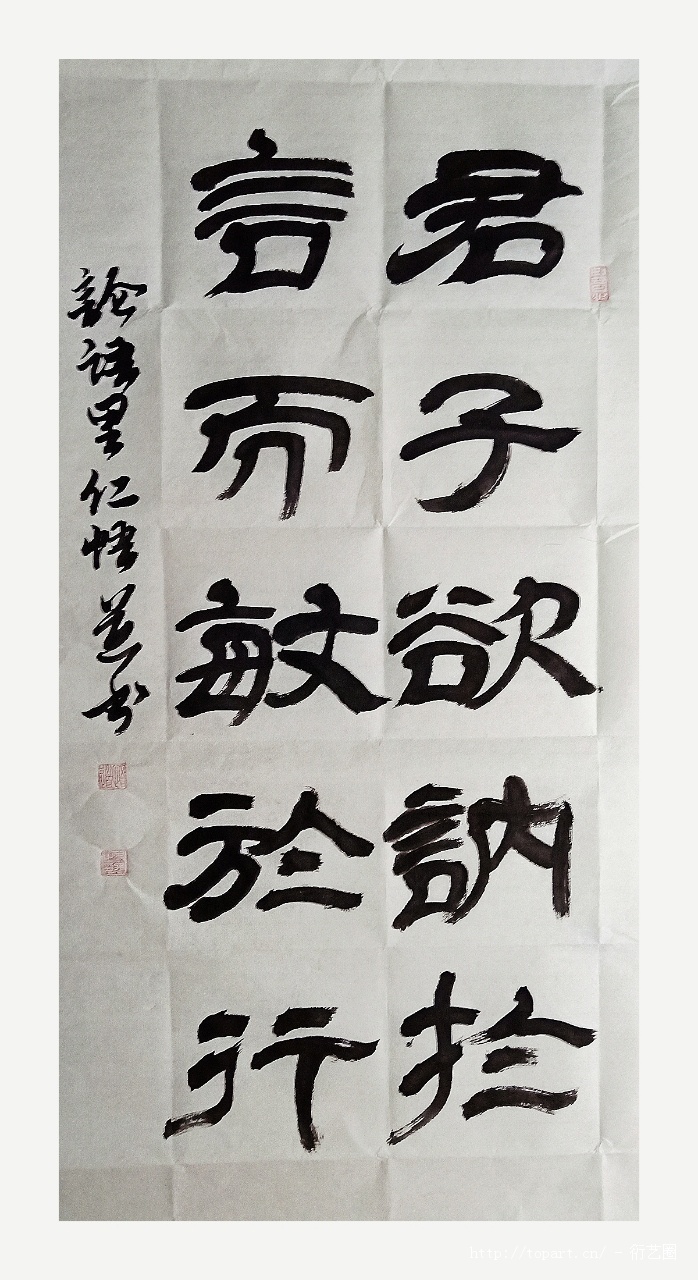 君子欲訥於
言而敏於行
論語里仁悟道書
http://topart.cn/ - 衍艺图